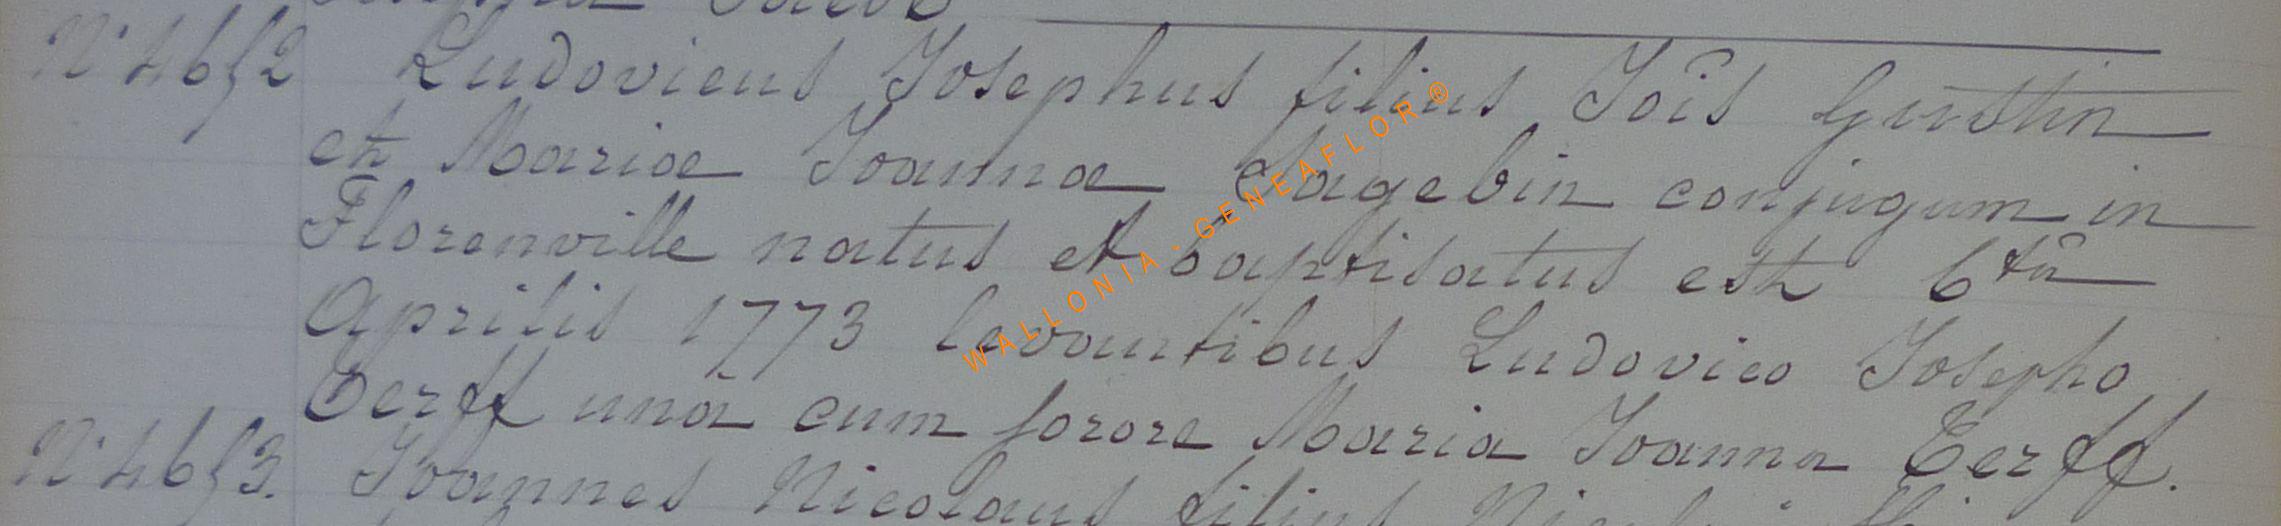 N° 4652 Ludovicus Josephus filius Jois Gustin
et Mariae Joanna Sagebin conjugum in
Florenville natus et baptisatus est 6ta
Aprilis 1773 levantibus Ludovico Josepho
Cerff una cum sorore Maria Joanna Cerff.
N° 4653. Joannes Nicolaus filius
WALLONIA - GENEAFLOR ®